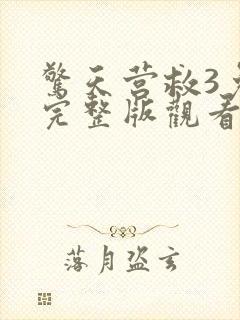 驚天营救3
完整版觀看
落月盗玄